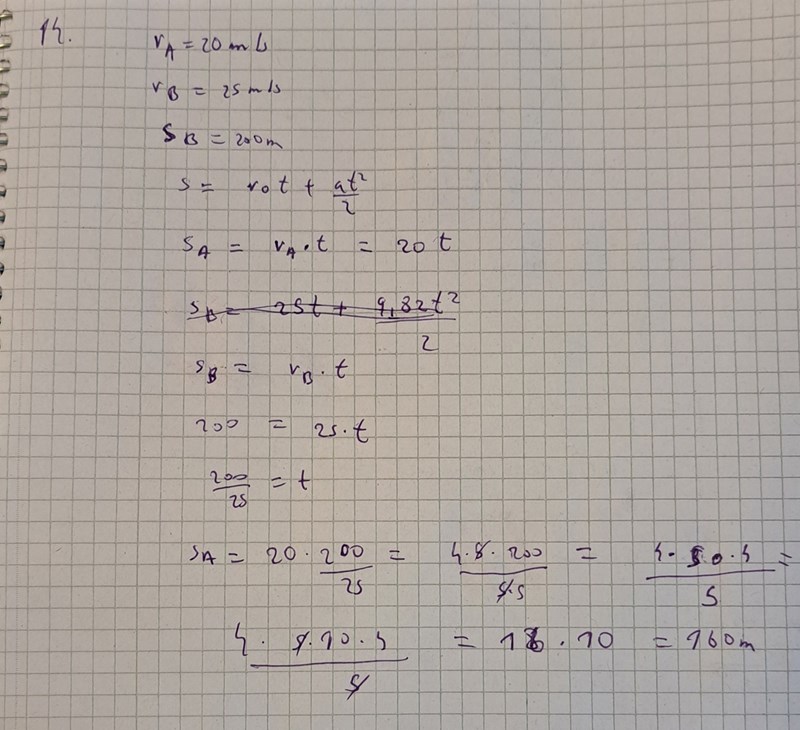 14.
v_A = 20 m/s
v_B = 25 m/s
s_B = 200m
s = v_0 t + at²/2
s_A = v_A · t = 20 t
s_B = 25t + 9,82t²/2
s_B = v_B · t
200 = 25 · t
200/25 = t
s_A = 20 · 200/25 = 4·5·200/5·5 = 4·50·4/5 =
4·5·10·4/5 = 16 · 10 = 160m